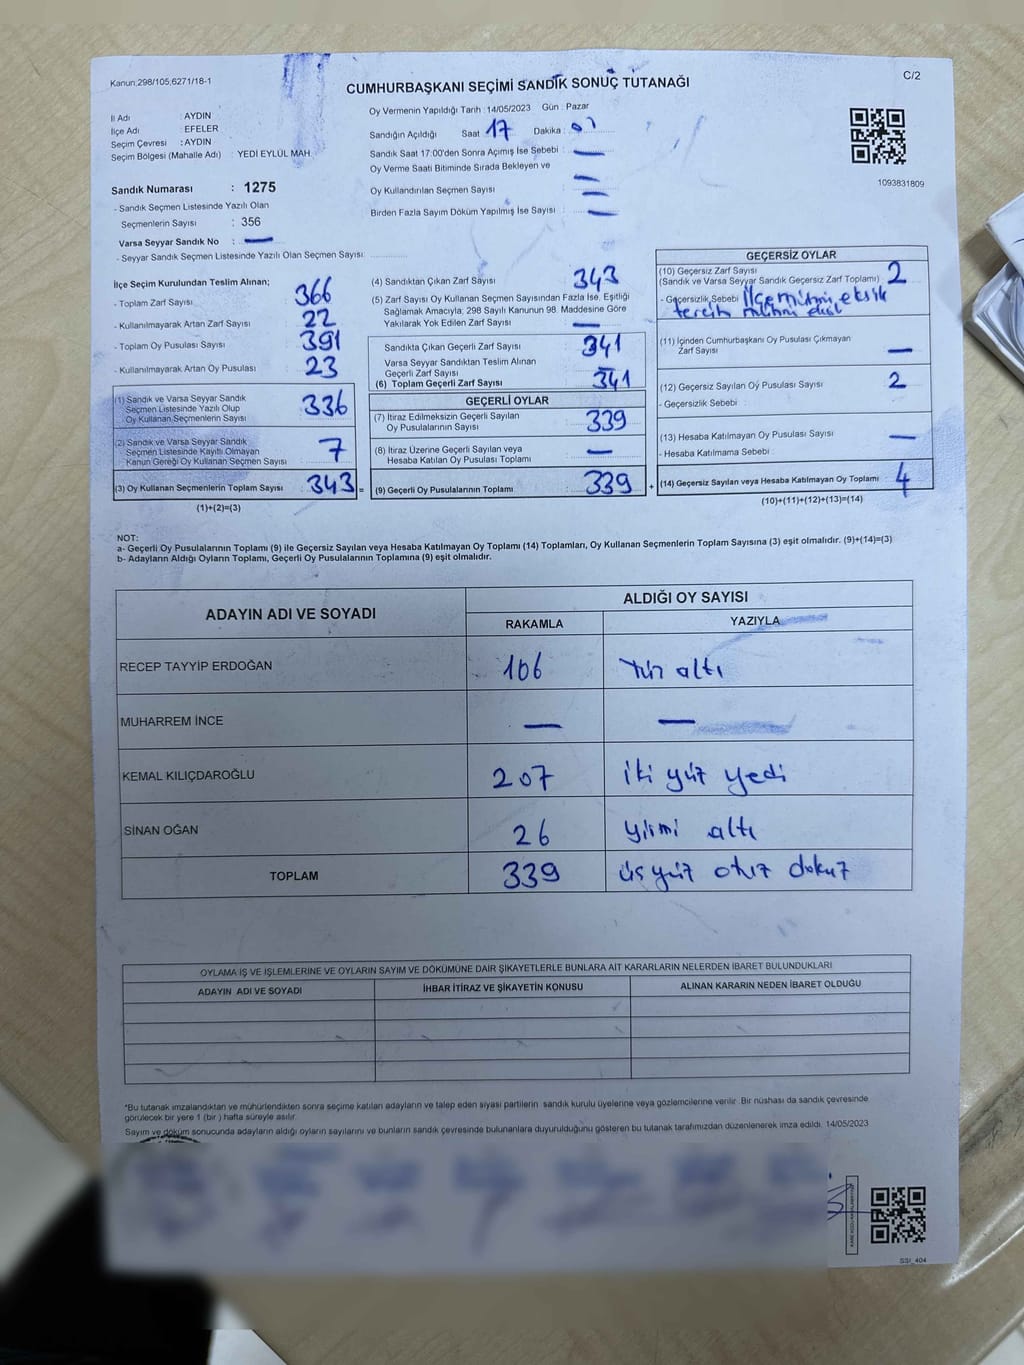 Kanun:298/105,6271/18-1
C/2
CUMHURBAŞKANI SEÇİMİ SANDIK SONUÇ TUTANAĞI
İl Adı : AYDIN
İlçe Adı : EFELER
Seçim Çevresi : AYDIN
Seçim Bölgesi (Mahalle Adı) : YEDİ EYLÜL MAH.
Sandık Numarası : 1275
- Sandık Seçmen Listesinde Yazılı Olan
Seçmenlerin Sayısı : 356
Varsa Seyyar Sandık No : —
- Seyyar Sandık Seçmen Listesinde Yazılı Olan Seçmen Sayısı:
Oy Vermenin Yapıldığı Tarih : 14/05/2023 Gün : Pazar
Sandığın Açıldığı Saat 17 Dakika :
Sandık Saat 17:00'den Sonra Açımış İse Sebebi : —
Oy Verme Saati Bitiminde Sırada Bekleyen ve
Oy Kullandırılan Seçmen Sayısı : —
Birden Fazla Sayım Döküm Yapılmış İse Sayısı : —
1093831809
İlçe Seçim Kurulundan Teslim Alınan;
- Toplam Zarf Sayısı 366
- Kullanılmayarak Artan Zarf Sayısı 22
- Toplam Oy Pusulası Sayısı 391
- Kullanılmayarak Artan Oy Pusulası 23
(1) Sandık ve Varsa Seyyar Sandık
Seçmen Listesinde Yazılı Olup
Oy Kullanan Seçmenlerin Sayısı 336
(2) Sandık ve Varsa Seyyar Sandık
Seçmen Listesinde Kayıtlı Olmayan
Kanun Gereği Oy Kullanan Seçmen Sayısı 7
(3) Oy Kullanan Seçmenlerin Toplam Sayısı : 343 =
(1)+(2)=(3)
(4) Sandıktan Çıkan Zarf Sayısı 343
(5) Zarf Sayısı Oy Kullanan Seçmen Sayısından Fazla İse, Eşitliği
Sağlamak Amacıyla; 298 Sayılı Kanunun 98. Maddesine Göre
Yakılarak Yok Edilen Zarf Sayısı —
Sandıkta Çıkan Geçerli Zarf Sayısı 341
Varsa Seyyar Sandıktan Teslim Alınan
Geçerli Zarf Sayısı —
(6) Toplam Geçerli Zarf Sayısı 341
GEÇERLİ OYLAR
(7) İtiraz Edilmeksizin Geçerli Sayılan
Oy Pusulalarının Sayısı 339
(8) İtiraz Üzerine Geçerli Sayılan veya
Hesaba Katılan Oy Pusulası Toplamı —
(9) Geçerli Oy Pusulalarının Toplamı 339 +
GEÇERSİZ OYLAR
(10) Geçersiz Zarf Sayısı
(Sandık ve Varsa Seyyar Sandık Geçersiz Zarf Toplamı) 2
- Geçersizlik Sebebi İlçe mührü eksik
tercih mührü
(11) İçinden Cumhurbaşkanı Oy Pusulası Çıkmayan
Zarf Sayısı —
(12) Geçersiz Sayılan Oy Pusulası Sayısı 2
- Geçersizlik Sebebi :
(13) Hesaba Katılmayan Oy Pusulası Sayısı —
- Hesaba Katılmama Sebebi
(14) Geçersiz Sayılan veya Hesaba Katılmayan Oy Toplamı : 4
(10)+(11)+(12)+(13)=(14)
NOT:
a- Geçerli Oy Pusulalarının Toplamı (9) ile Geçersiz Sayılan veya Hesaba Katılmayan Oy Toplamı (14) Toplamları, Oy Kullanan Seçmenlerin Toplam Sayısına (3) eşit olmalıdır. (9)+(14)=(3)
b- Adayların Aldığı Oyların Toplamı, Geçerli Oy Pusulalarının Toplamına (9) eşit olmalıdır.
ADAYIN ADI VE SOYADI
ALDIĞI OY SAYISI
RAKAMLA YAZIYLA
RECEP TAYYİP ERDOĞAN 106 yüz altı
MUHARREM İNCE — —
KEMAL KILIÇDAROĞLU 207 iki yüz yedi
SİNAN OĞAN 26 yilmi altı
TOPLAM 339 üçyüz otuz dokuz
OYLAMA İŞ VE İŞLEMLERİNE VE OYLARIN SAYIM VE DÖKÜMÜNE DAİR ŞİKAYETLERLE BUNLARA AİT KARARLARIN NELERDEN İBARET BULUNDUKLARI
ADAYIN ADI VE SOYADI İHBAR İTİRAZ VE ŞİKAYETİN KONUSU ALINAN KARARIN NEDEN İBARET OLDUĞU
*Bu tutanak imzalandıktan ve mühürlendikten sonra seçime katılan adayların ve talep eden siyasi partilerin sandık kurulu üyelerine veya gözlemcilerine verilir. Bir nüshası da sandık çevresinde
görülecek bir yere 1 (bir) hafta süreyle asılır.
Sayım ve döküm sonucunda adayların aldığı oyların sayılarını ve bunların sandık çevresinde bulunanlara duyurulduğunu gösteren bu tutanak tarafımızdan düzenlenerek imza edildi. 14/05/2023
SSI_404